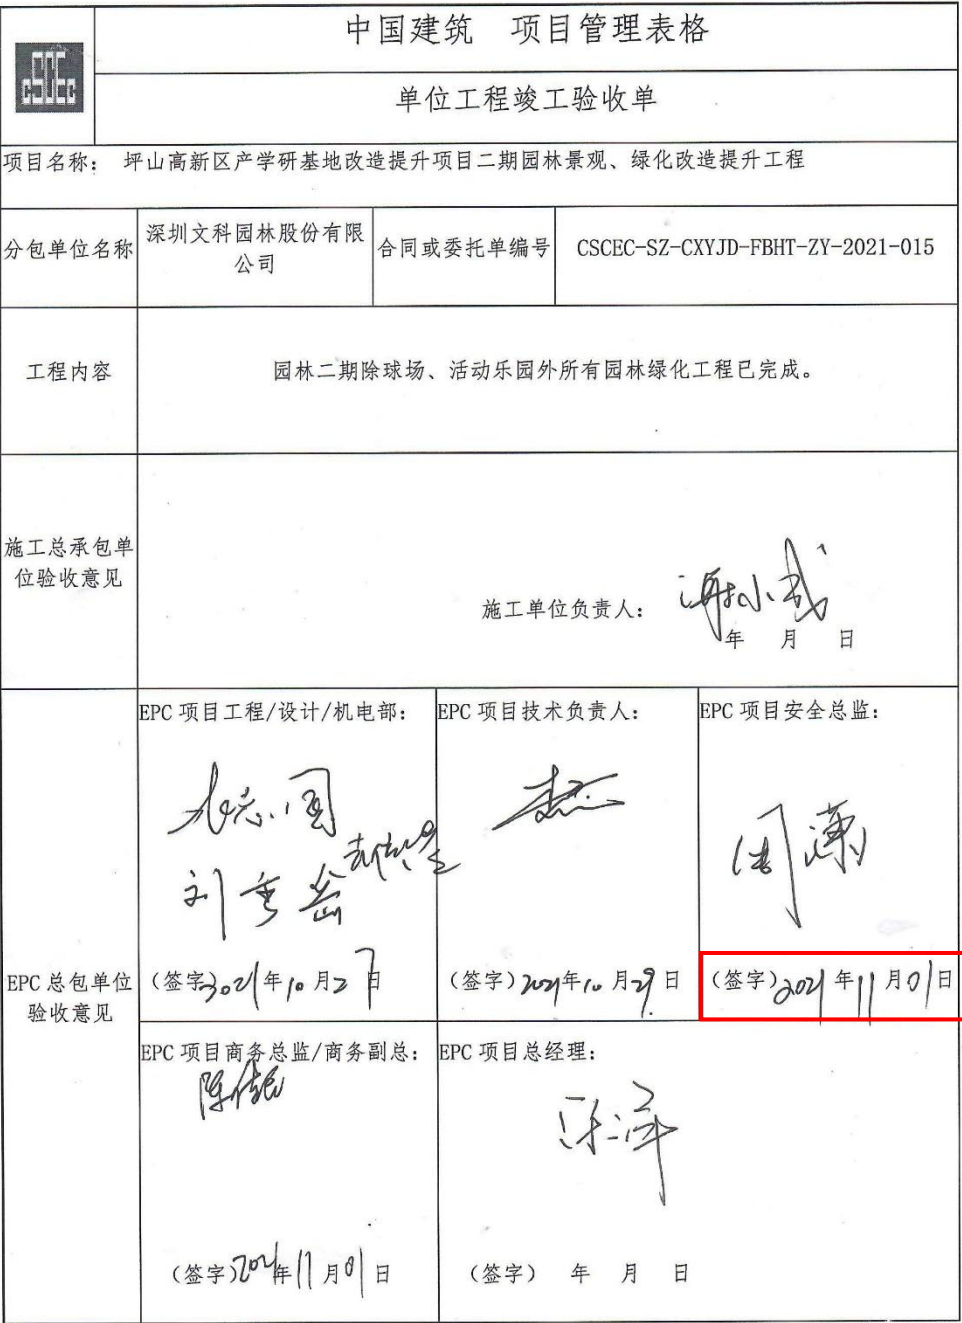 CSCEC
中国建筑 项目管理表格
单位工程竣工验收单
项目名称: 坪山高新区产学研基地改造提升项目二期园林景观、绿化改造提升工程
分包单位名称
深圳文科园林股份有限
公司
合同或委托单编号
CSCEC-SZ-CXYJD-FBHT-ZY-2021-015
工程内容
园林二期除球场、活动乐园外所有园林绿化工程已完成。
施工总承包单
位验收意见
施工单位负责人:
年 月 日
EPC 总包单位
验收意见
EPC 项目工程/设计/机电部:
刘重岳
(签字)2021年10月27日
EPC 项目技术负责人:
(签字)2021年10月29日
EPC 项目安全总监:
周潇
(签字)2021年11月01日
EPC 项目商务总监/商务副总:
(签字)2021年11月01日
EPC 项目总经理:
(签字) 年 月 日